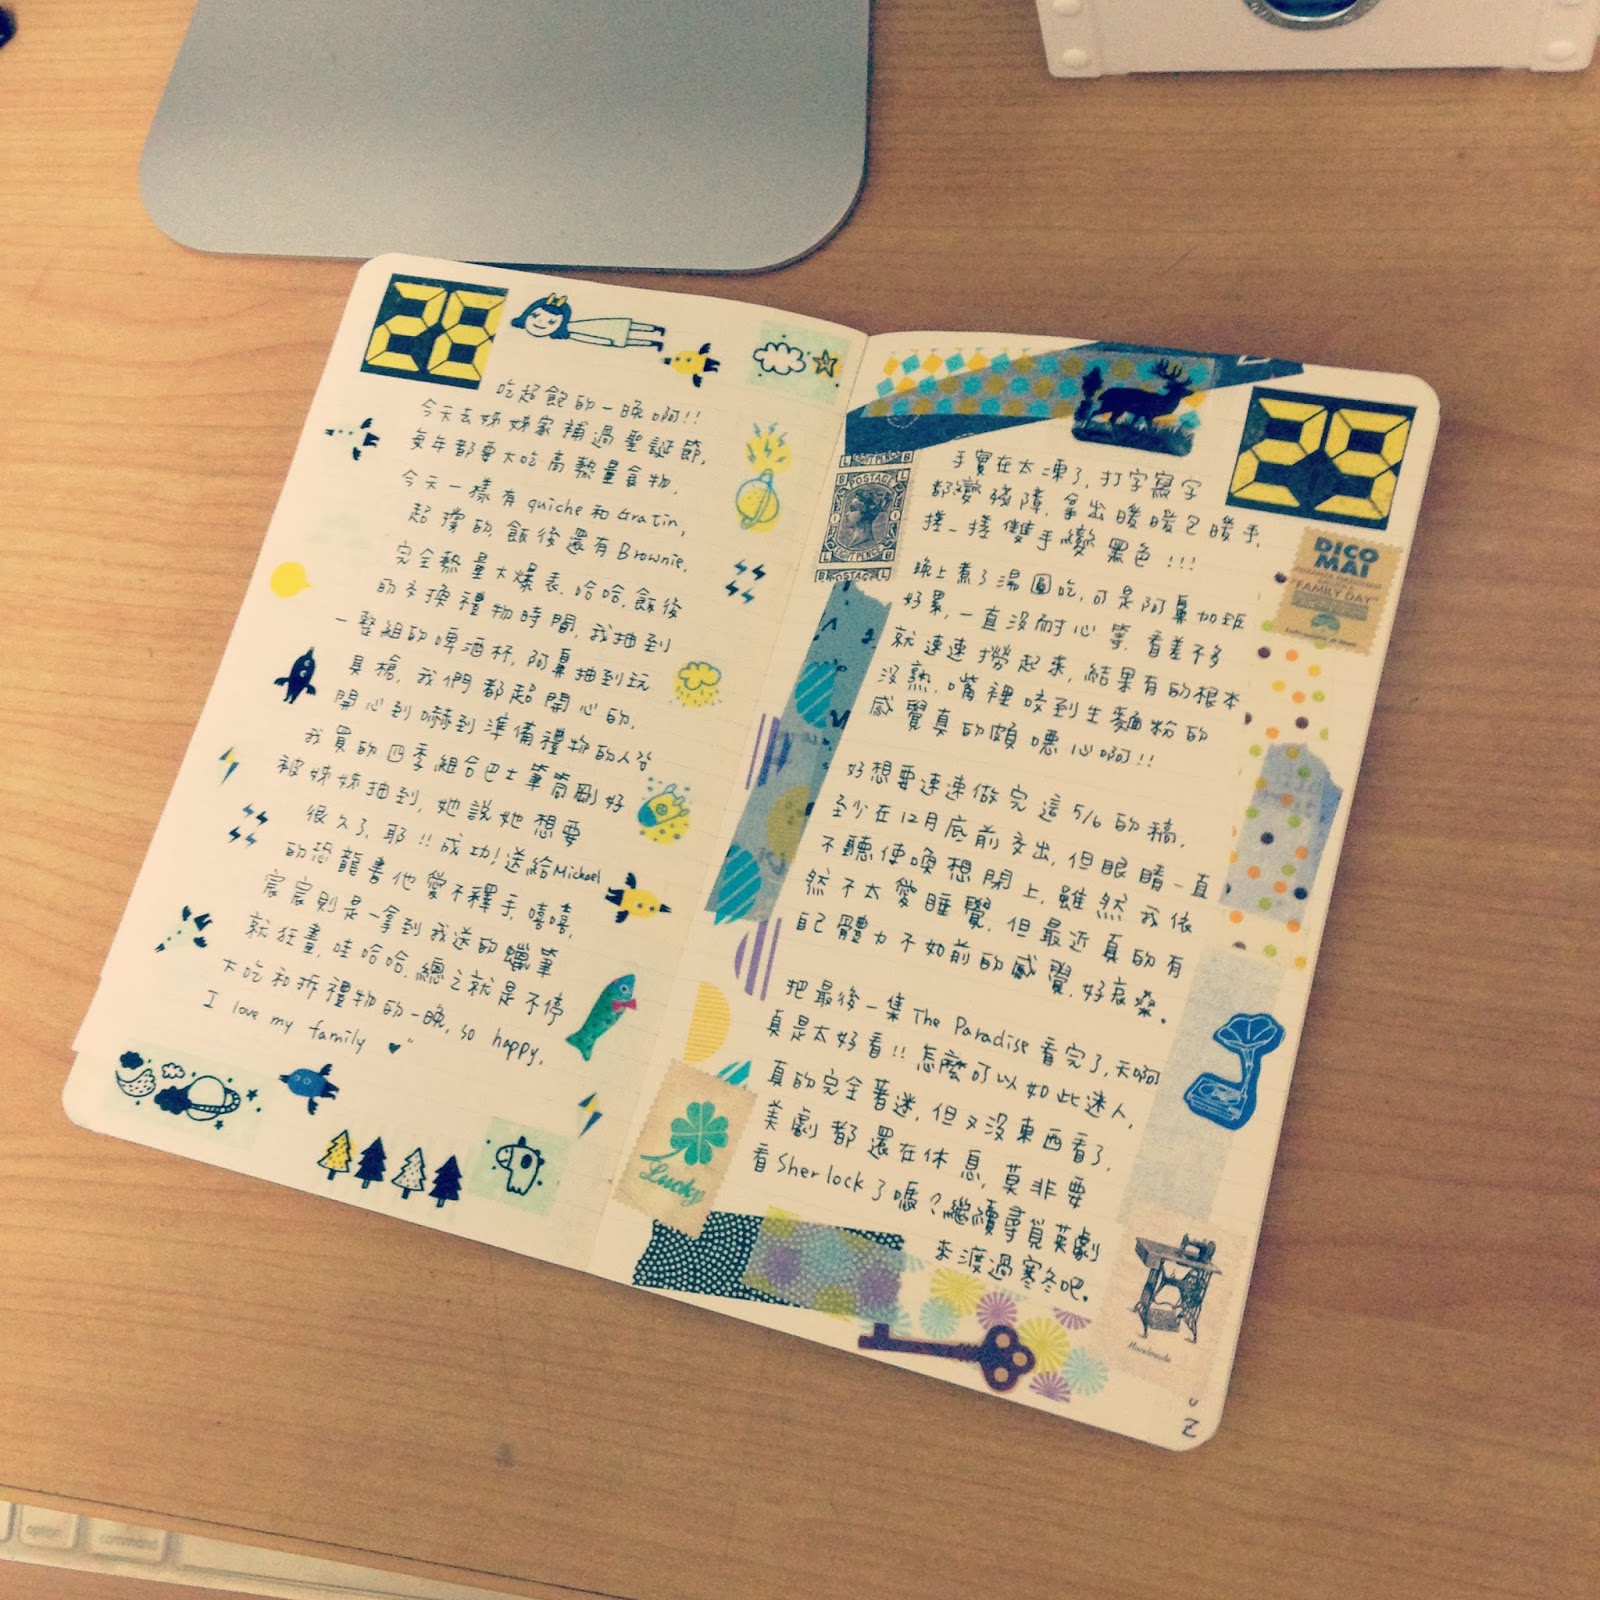 28
吃超飽的一晚啊!!
今天去姊姊家補過聖誕節,
每年都要大吃高熱量食物,
今天一樣有quiche和Gratin,
超撐的,飯後還有Brownie,
完全熱量大爆表,哈哈,飯後
的交換禮物時間,我抽到
一整組的啤酒杯,阿鼻抽到玩
具槍,我們都超開心的,
開心到嚇到準備禮物的人
我買的四季組合巴士筆筒剛好
被姊姊抽到,她說她想要
很久了,耶!!成功!送給Michael
的恐龍書他愛不釋手,嘻嘻,
宸宸則是一拿到我送的蠟筆
就狂畫,哇哈哈,總之就是不停
大吃和拆禮物的一晚,so happy,
I love my family ♥"
29
手實在太凍了,打字寫字
都變殘障,拿出暖暖包暖手,
搓一搓雙手變黑色!!!
晚上煮了湯圓吃,可是阿鼻加班
好累,一直沒耐心等,看差不多
就速速撈起來,結果有的根本
沒熟,嘴裡咬到生麵粉的
感覺真的頗噁心啊!!
好想要速速做完這5/6的稿,
至少在12月底前交出,但眼睛一直
不聽使喚想閉上,雖然我依
然不太愛睡覺,但最近真的有
自己體力不如前的感覺,好哀桑。
把最後一集The Paradise看完了,天啊
真是太好看!!怎麼可以如此迷人,
真的完全著迷,但又沒東西看了,
美劇都還在休息,莫非要
看Sherlock了嗎?繼續尋覓英劇
來渡過寒冬吧。
EIGHT PENCE
POSTAGE
POSTAGE
DICO
MAI
"FAMILY DAY"
Lucky
Handmade
option
command